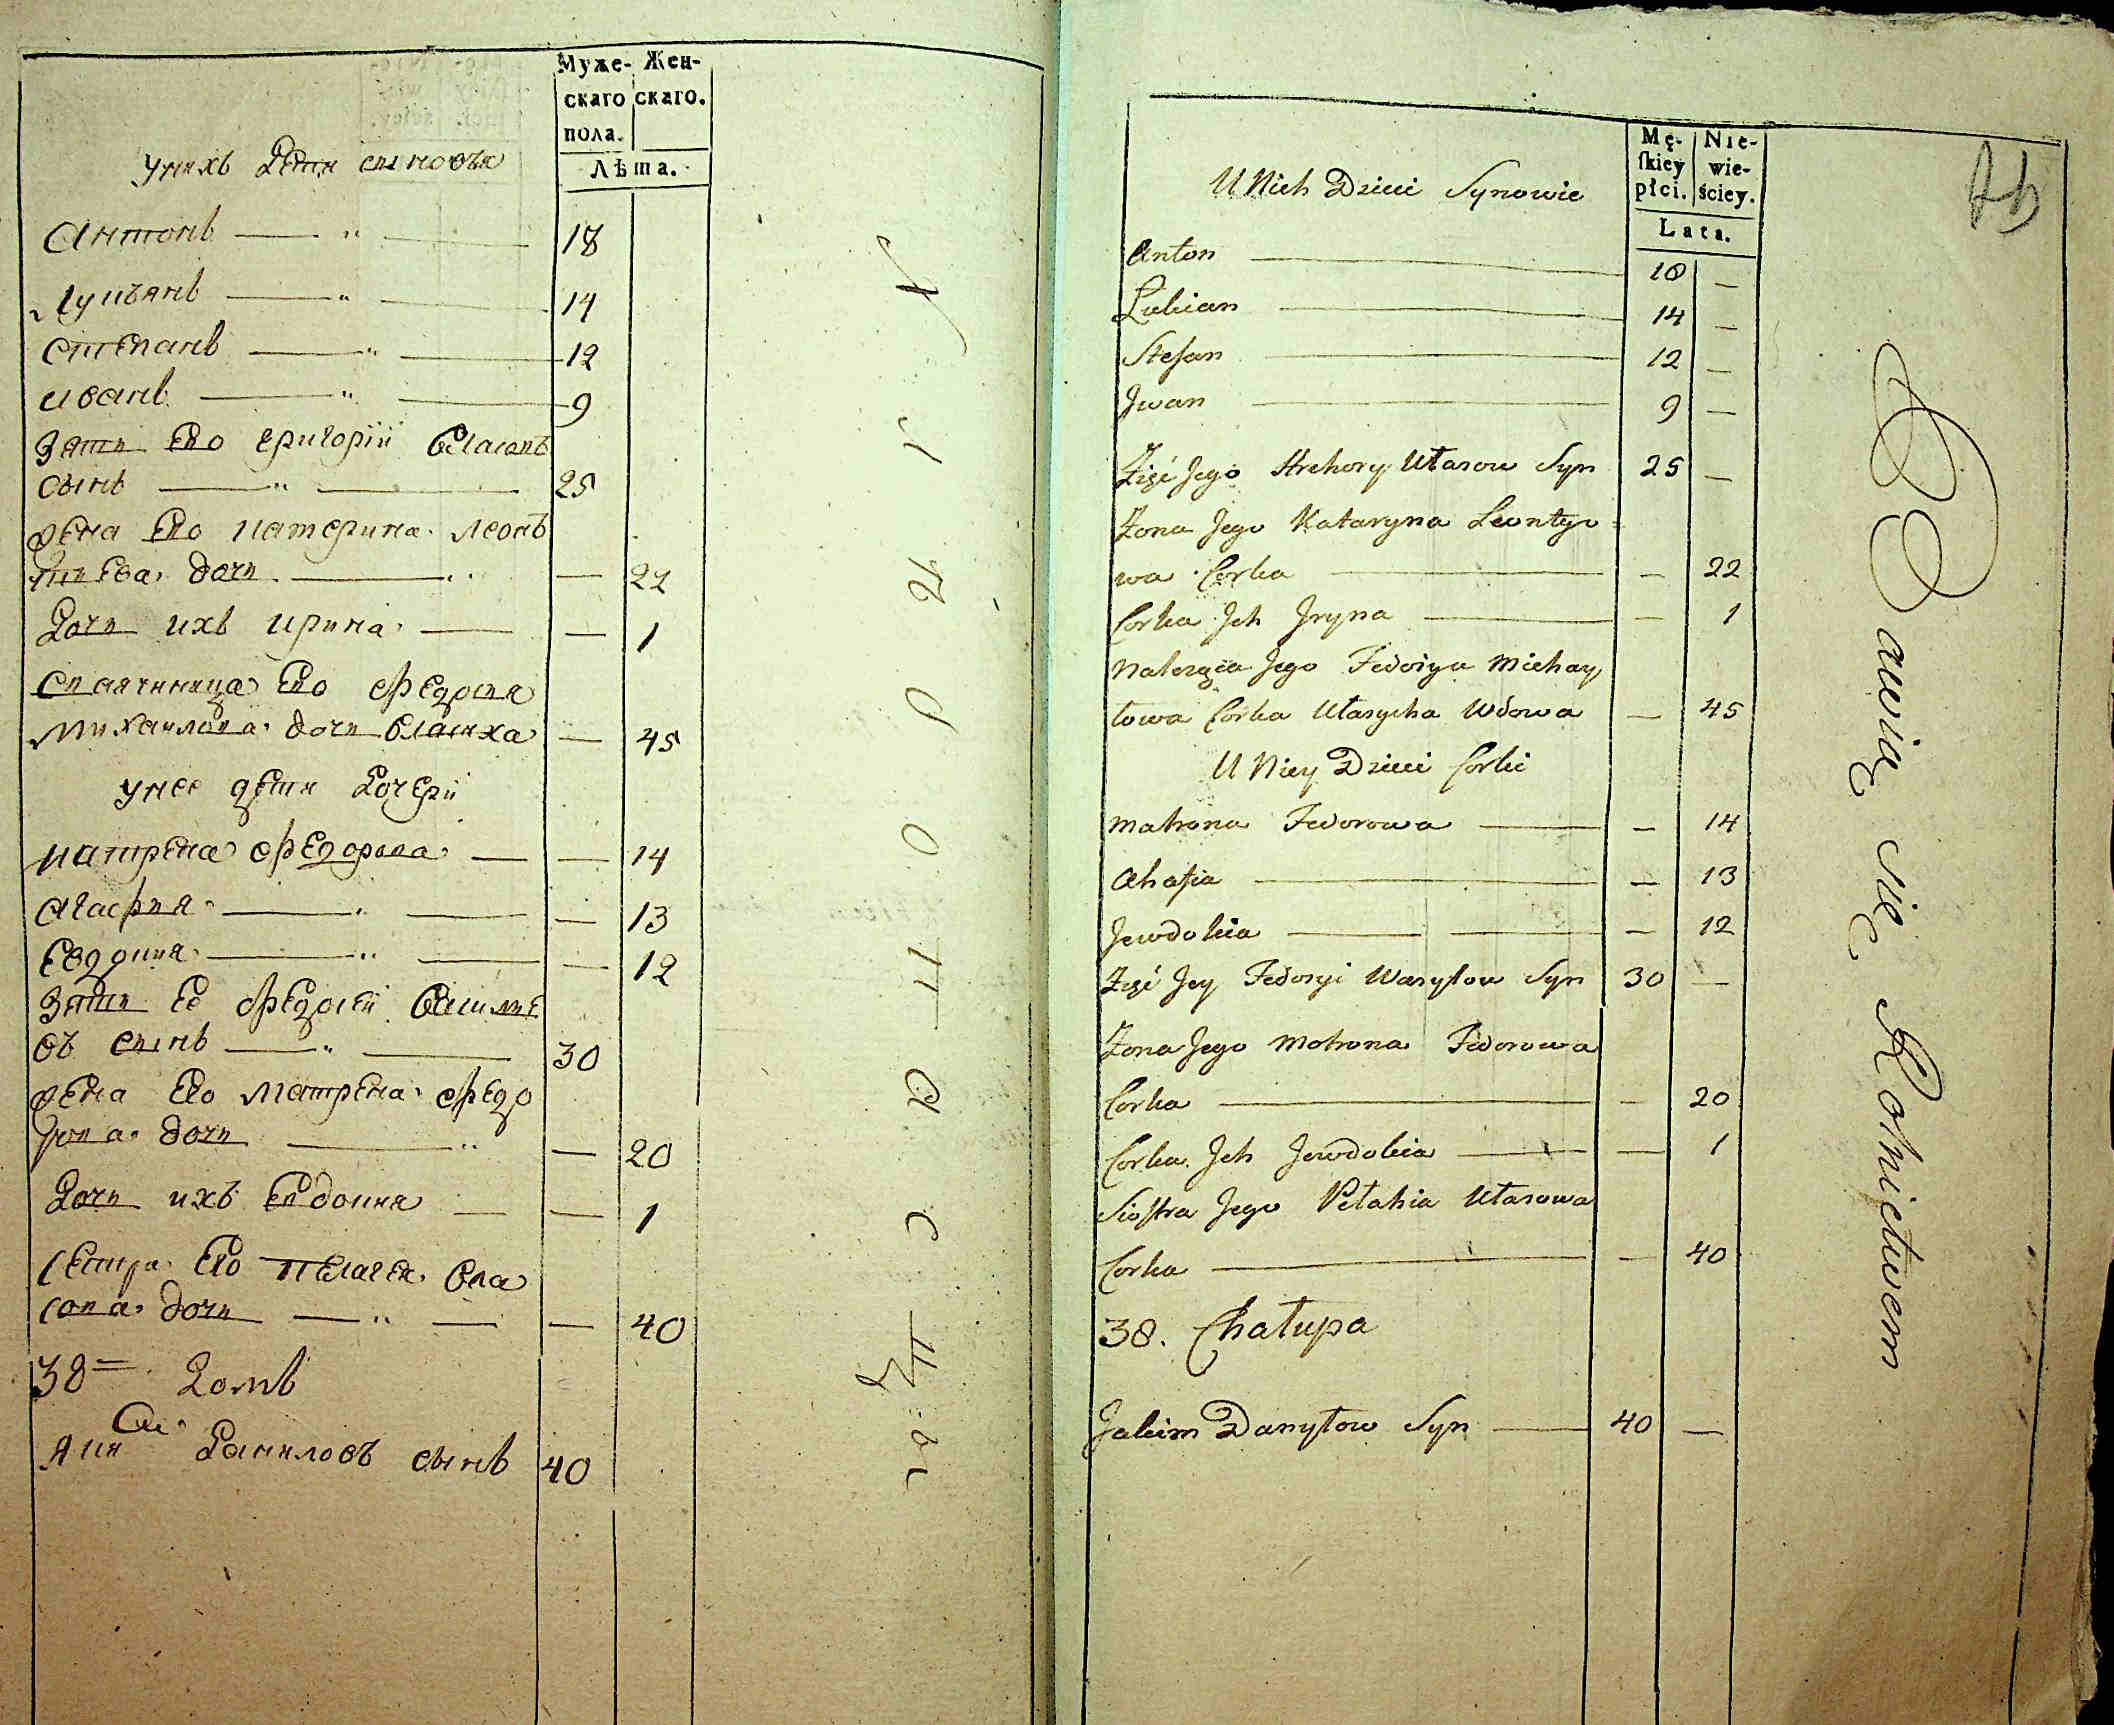 Муже- Жен-
скаго скаго.
пола.
Лѣта.
У нихъ Дети сыновья
Антонъ — " — 18
Лукьянъ — " — 14
Степанъ — " — 12
Иванъ — " — 9
Зять Его Григорий Власовъ
сынъ — " — 25
жена Его Катерина Леонъ
тиева дочь — " — 22
Дочь ихъ Ирина — — 1
Его Федосия
Михайлова дочь Власиха — 45
У нее дети Дочери
Матрена Федорова — — 14
Агафия — " — — 13
Евдокия — " — — 12
Зять Ее Федосей Василье
въ сынъ — " — 30
жена Его Матрена Федо
рова дочь — " — 20
Дочь ихъ Евдокия — — 1
Сестра Его Пелагея Вла
сова дочь — " — — 40
38 = Домъ
Яки Даниловъ сынъ 40
Хлебопашецъ
Mę- Nie-
skiey wie-
płci. ściey.
Lata.
U Nich Dzieci Synowie
Anton — 18 —
Łukian — 14 —
Stefan — 12 —
Jwan — 9 —
Zięć Jego Hrehory Własow Syn 25 —
Żona Jego Kataryna Leontyo
wa Corka — — 22
Corka Jch Jryna — — 1
Jego Fedosya Michay
łowa Corka Własycha Wdowa — 45
U Niey Dzieci Corki
Matrona Fedorowa — — 14
Ahafia — — 13
Jewdokia — — 12
Zięć Jey Fedosyi Wasylow Syn 30 —
Żona Jego Motrona Fedorowa
Corka — — 20
Corka Jch Jewdokia — — 1
Siostra Jego Pełahia Własowa
Corka — — 40
38. Chałupa
Jakim Danyłow Syn — 40 —
Bawią się Rolnictwem